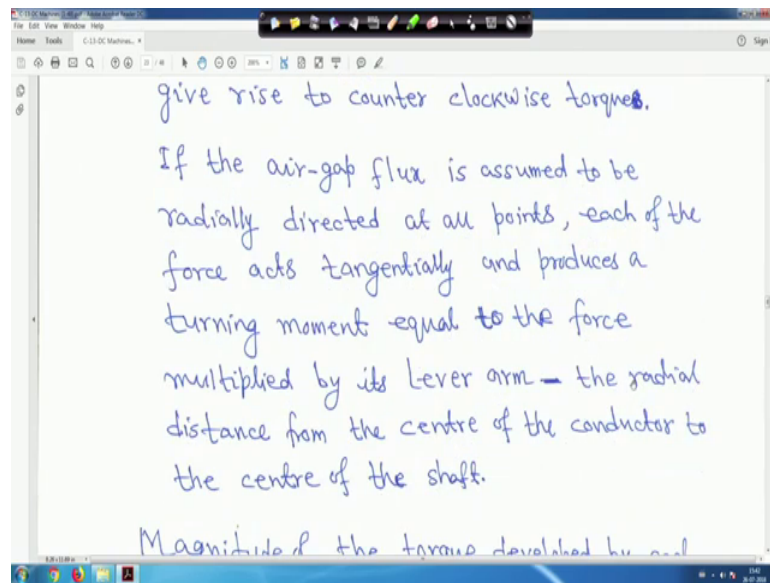 C-13-DC Machines (1-46).pdf - Adobe Acrobat Reader DC
File Edit View Window Help
Home Tools C-13-DC Machines... ×
Sign
give rise to counter clockwise torques.
If the air-gap flux is assumed to be
radially directed at all points, each of the
force acts tangentially and produces a
turning moment equal to the force
multiplied by its Lever arm – the radial
distance from the centre of the conductor to
the centre of the shaft.
Magnitude of the torque developed by each
15:42